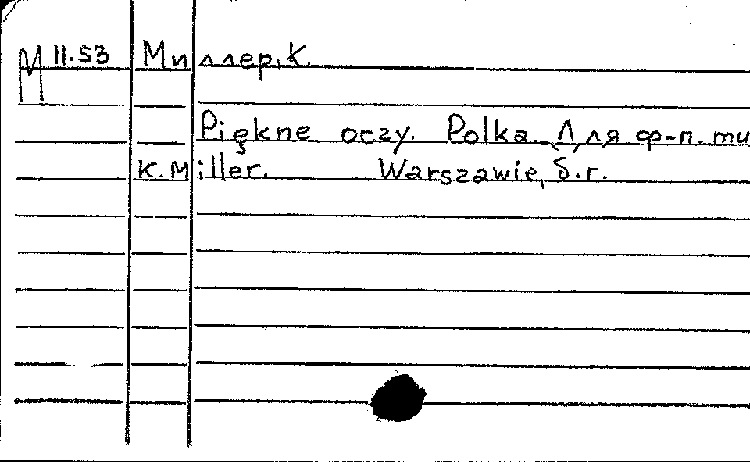 М 11.53 Миллер, К.
Piękne oczy. Polka. Для ф-п. ти
K. Miller. Warszawie, б.г.